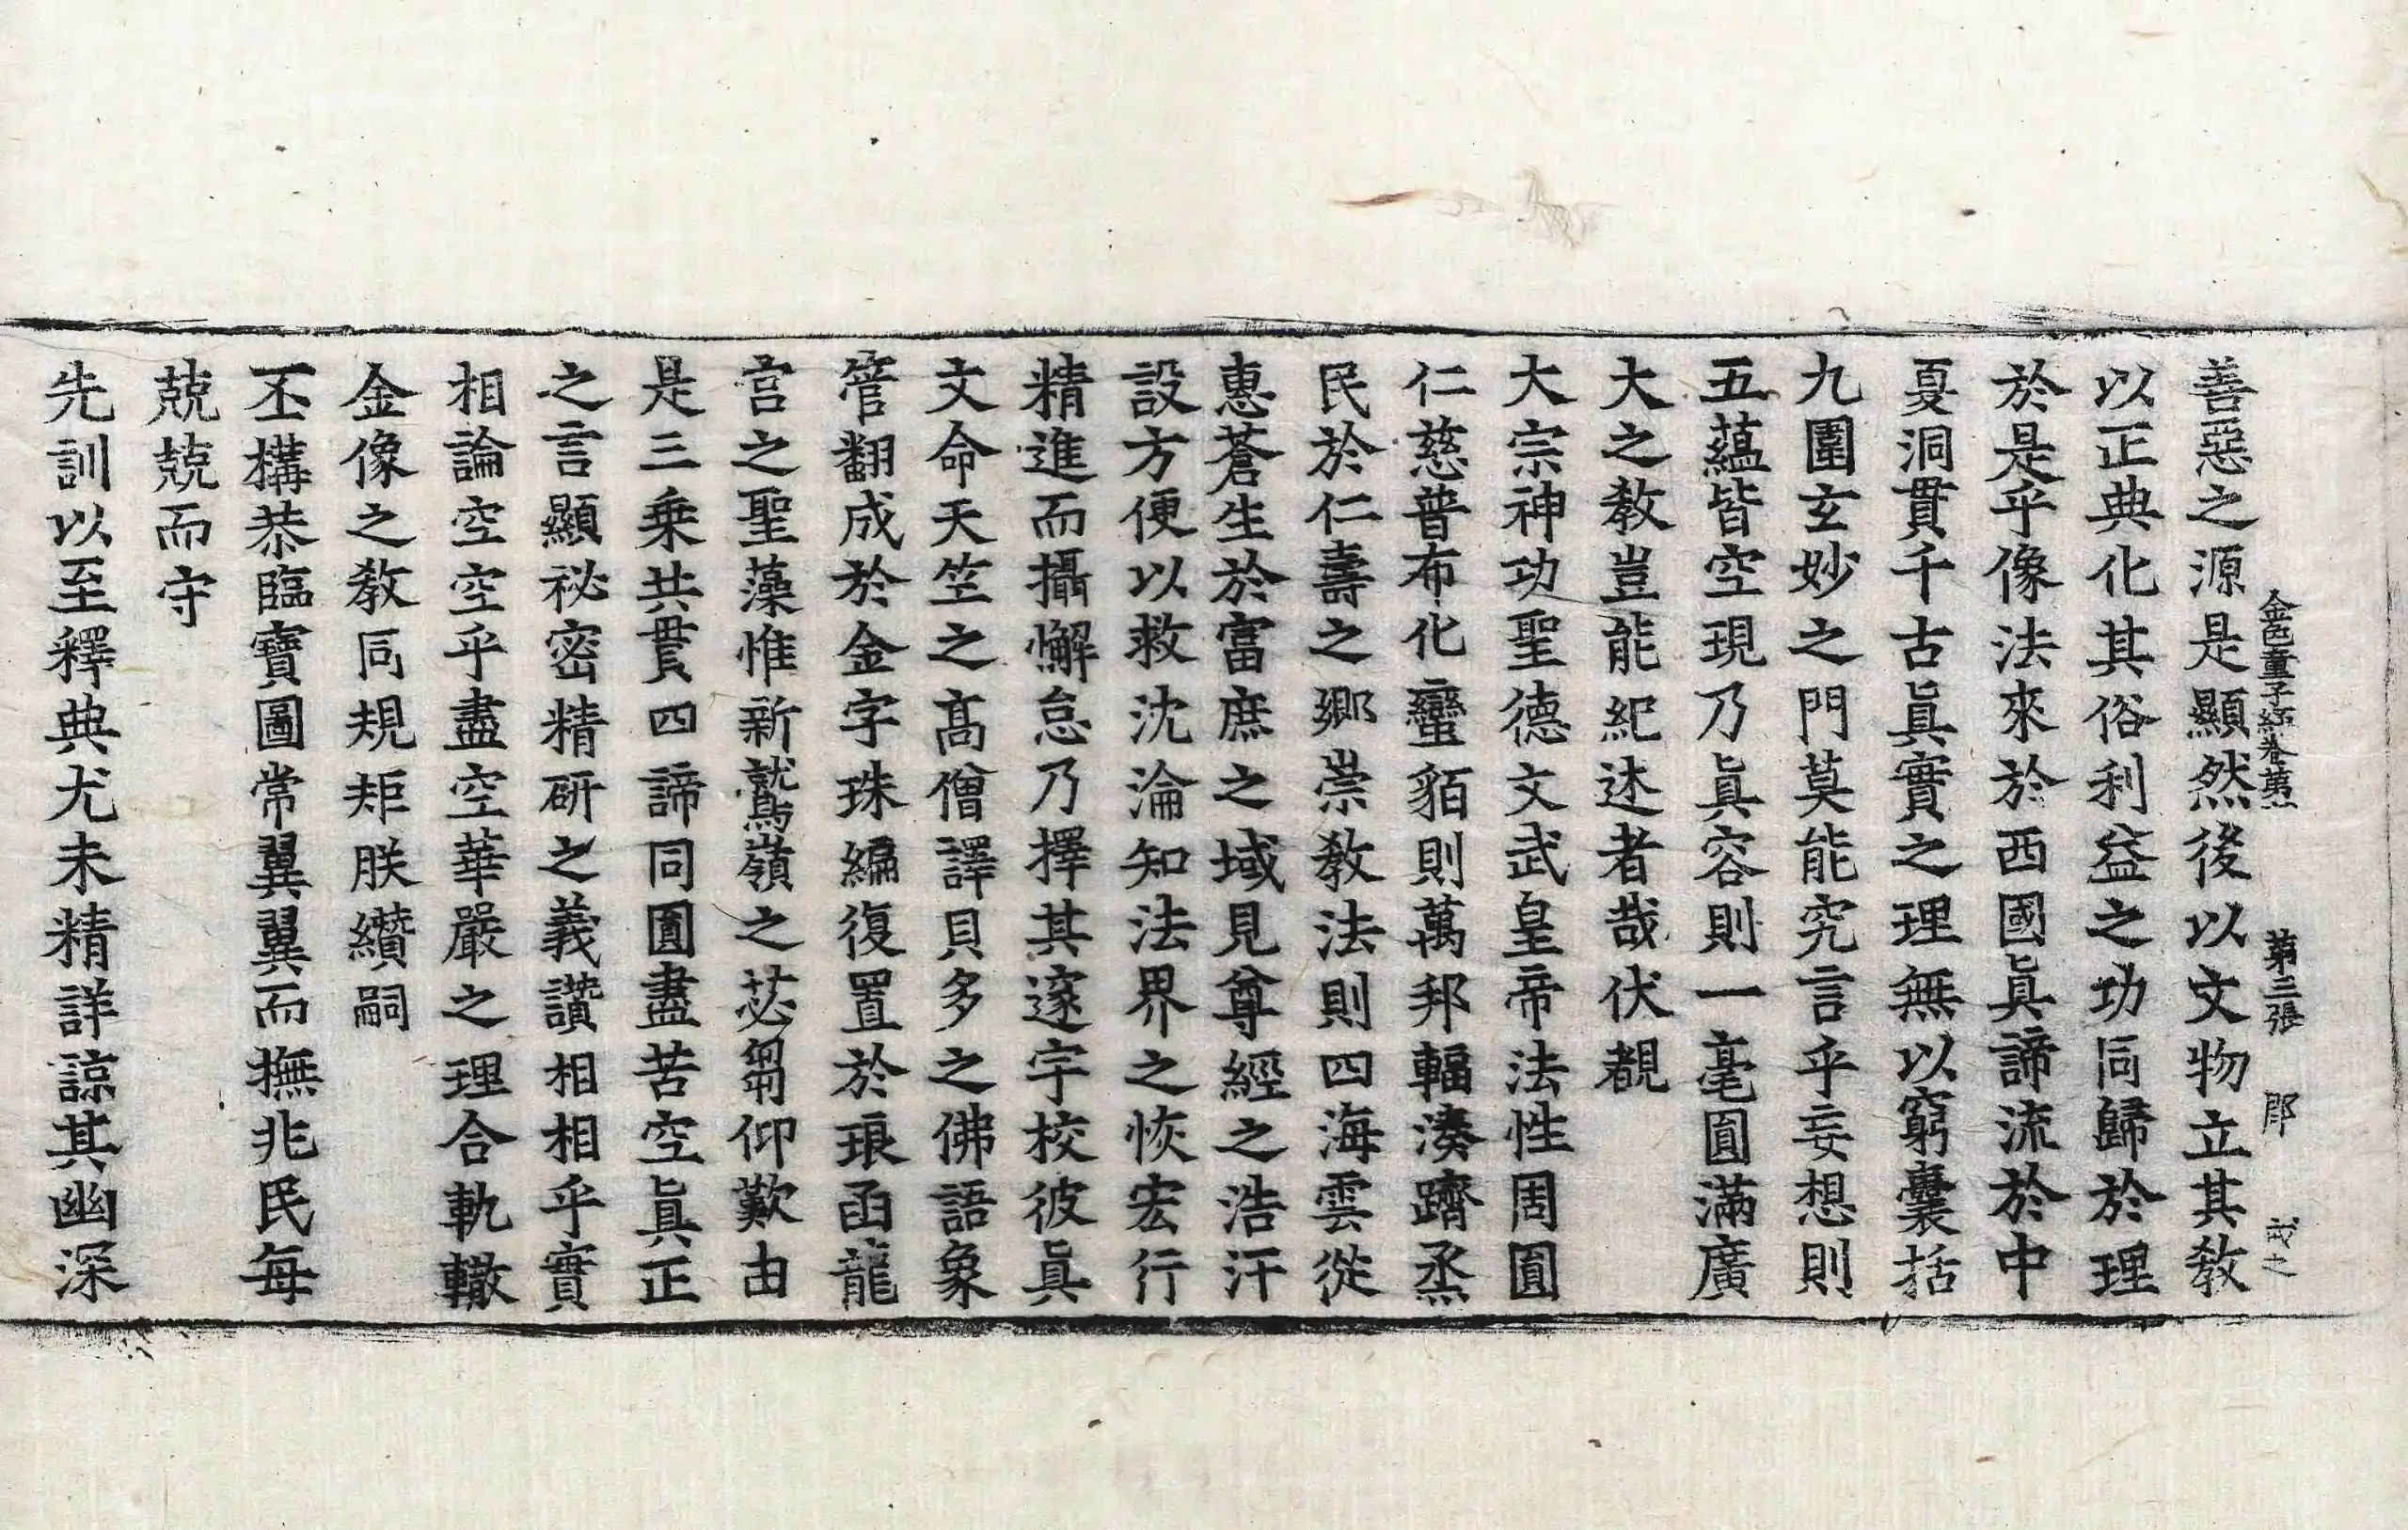 善惡之源是顯然後以文物立其教
以正典化其俗利益之功同歸於理
於是乎像法來於西國眞諦流於中
夏洞貫千古眞實之理無以窮囊括
九圍玄妙之門莫能究言乎妄想則
五蘊皆空現乃眞容則一毫圓滿廣
大之教豈能紀述者哉伏覩
大宗神功聖德文武皇帝法性周圓
仁慈普布化蠻貊則萬邦輻湊躋烝
民於仁壽之鄉崇教法則四海雲從
惠蒼生於富庶之域見尊經之浩汗
設方便以救沈淪知法界之恢宏行
精進而攝懈怠乃擇其邃宇校彼眞
文命天竺之髙僧譯貝多之佛語象
管翻成於金字珠編復置於琅函龍
宮之聖藻惟新鷲嶺之苾蒭仰歎由
是三乗共貫四諦同圓盡苦空眞正
之言顯祕密精研之義讚相相乎實
相論空空乎盡空華嚴之理合軌轍
金像之教同規矩朕纘嗣
丕搆恭臨寶圖常翼翼而撫兆民每
兢兢而守
先訓以至釋典尤未精詳諒其幽深
金色童子經卷第一
第三張